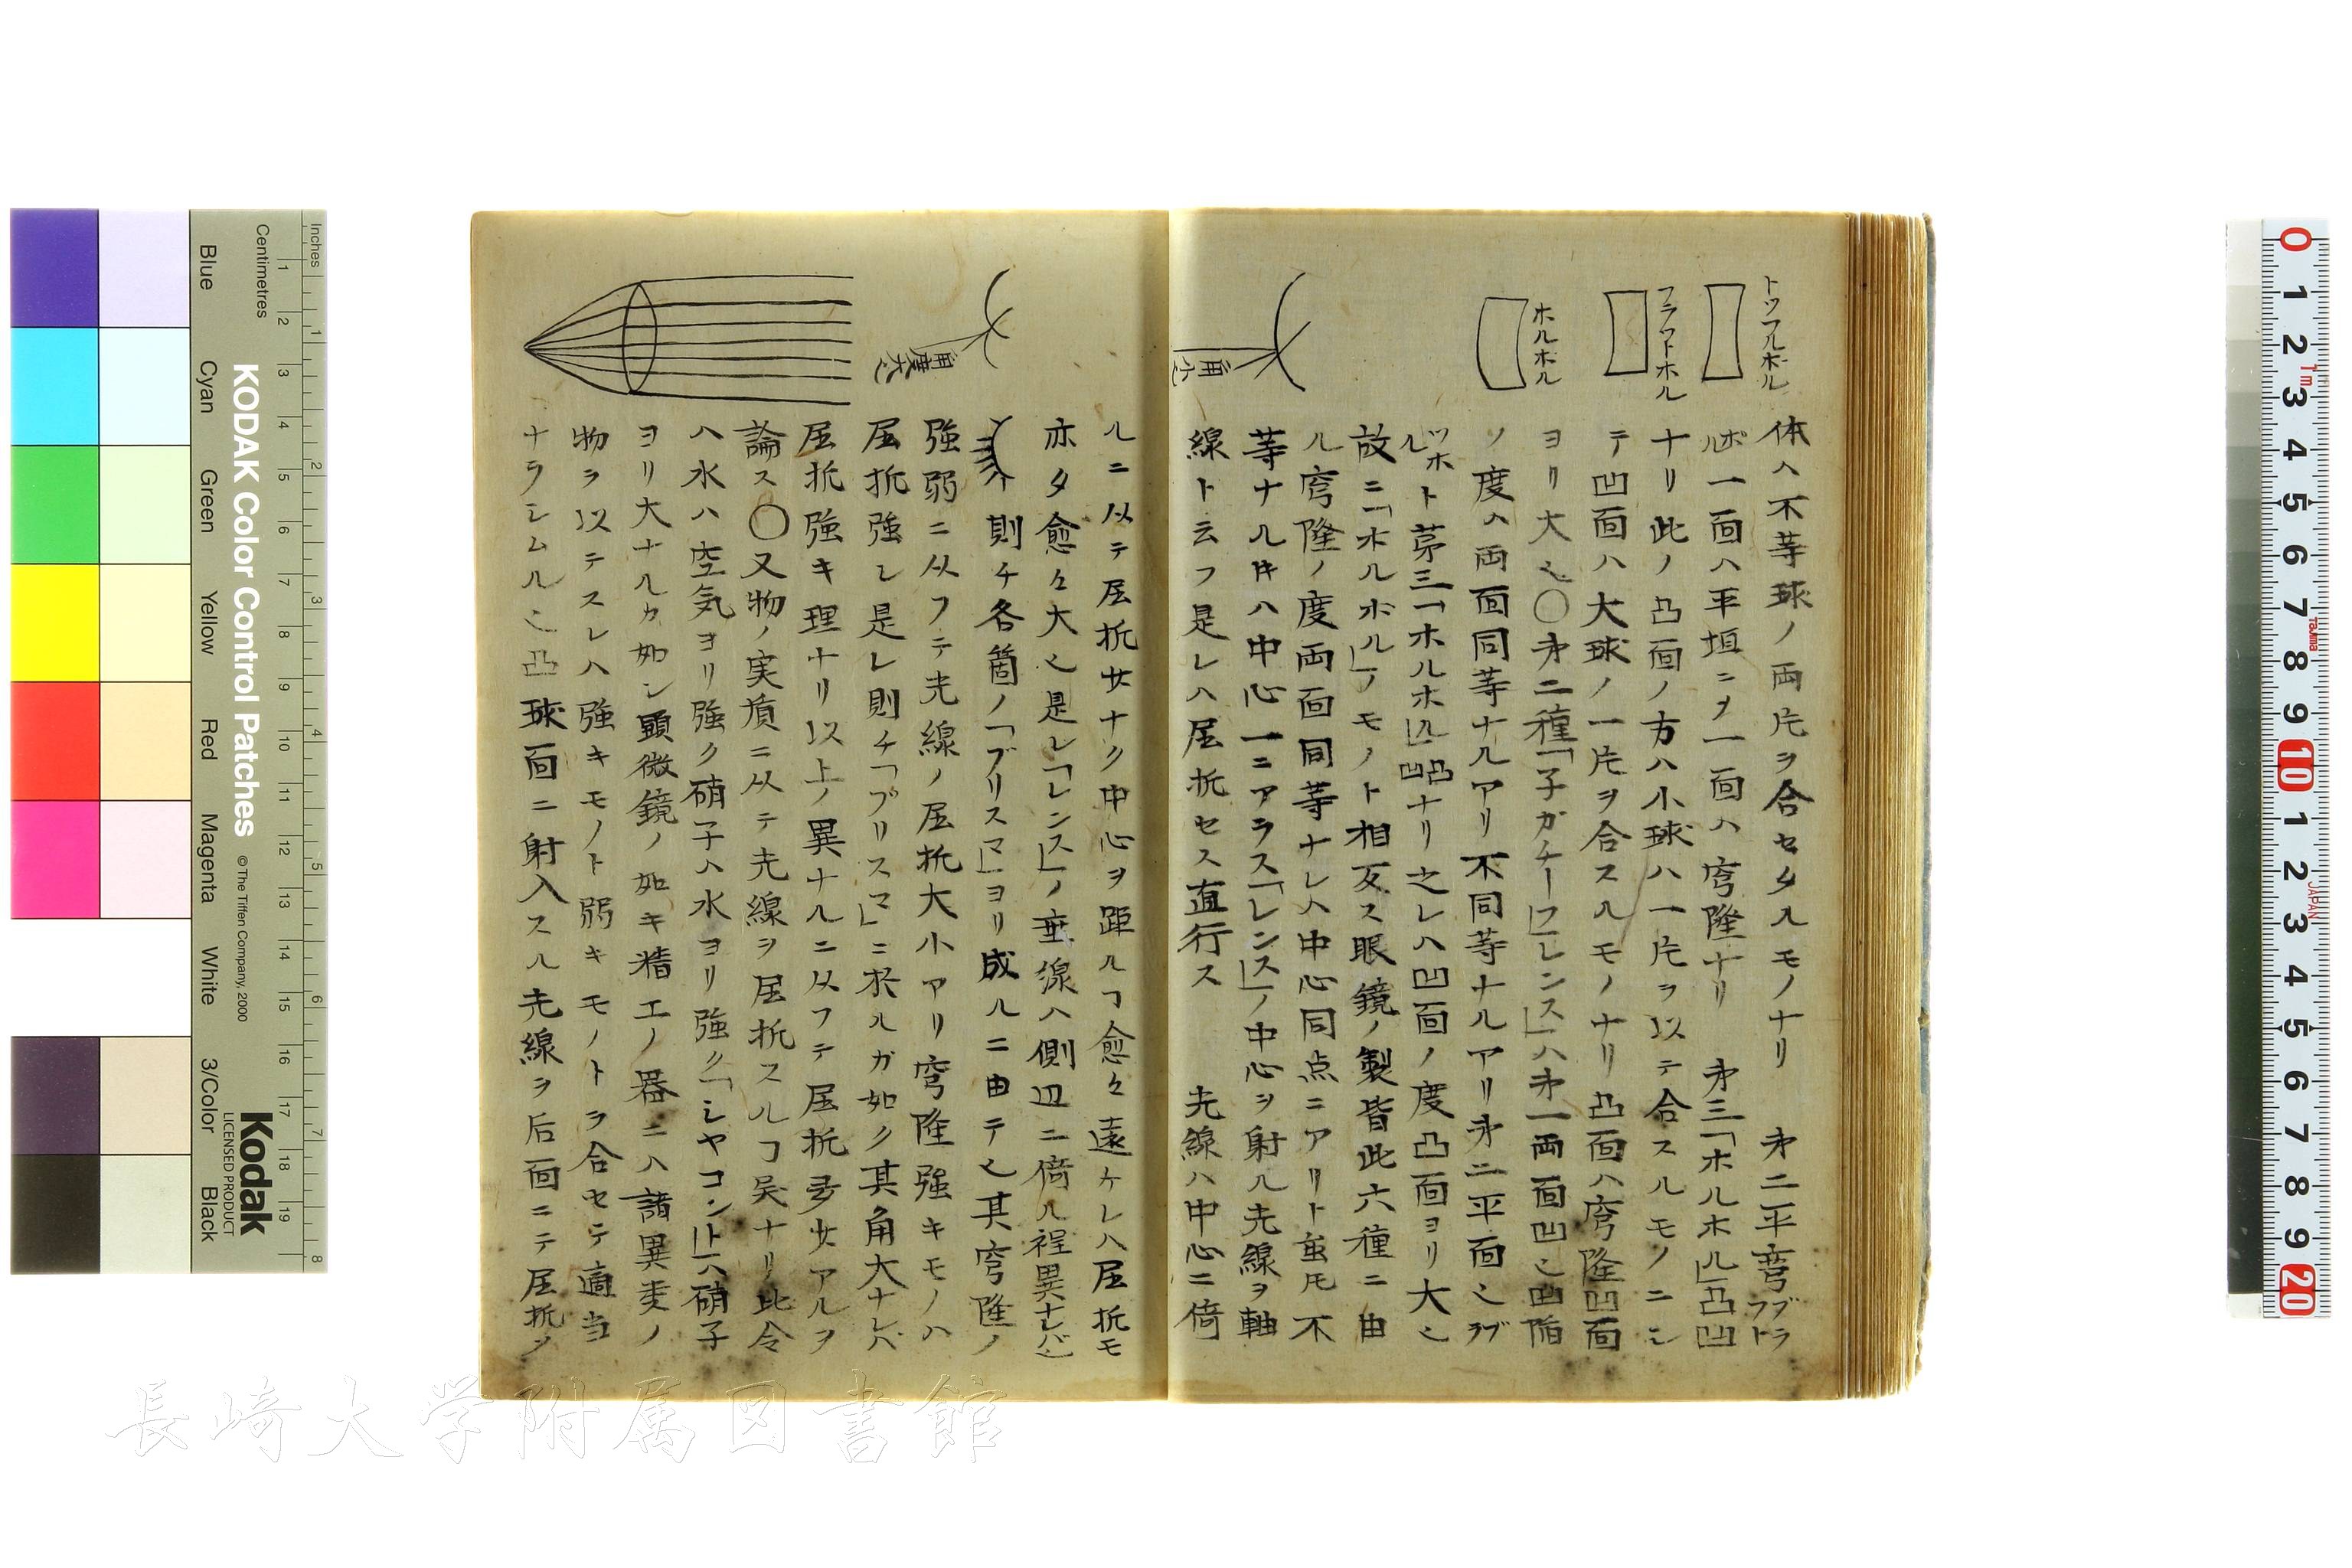 トツフルホル
フラットホル
ホルボル
体ハ不等球ノ両片ヲ合セタルモノナリ 㐧二平弯フラトブ
ルボ一面ハ平坦ニメ一面ハ穹隆ナリ 㐧三「ホルホル」凸凹
ナリ此ノ凸面ノ方ハ小球ハ一片ヲ以テ合スルモノニシ
テ凹面ハ大球ノ一片ヲ合スルモノナリ凸面ハ穹隆凹面
ヨリ大也〇㐧二種「子ガチーフレンス」ハ㐧一両面凹也
ノ度ハ両面同等ナルアリ不同等ナルアリ㐧二平面也
ト㐧三「ホルホル」凸凹ナリ之レハ凹面ノ度凸面ヨリ大也
故ニ「ホルボル」ノモノト相反ス眼鏡ノ製皆此六種ニ由
ル穹隆ノ度両面同等ナレハ中心同点ニアリト虽𪜈不
等ナル𪜈ハ中心一ニアラス「レンス」ノ中心ヲ射ル光線ヲ軸
線ト云フ是レハ屈折セス直行ス 光線ハ中心ニ倚
角小也
ルニ从テ屈折少ナク中心ヲ距ルヿ愈々遠ケレハ屈折モ
亦タ愈々大也是レ「レンス」ノ垂線ハ側辺ニ倚ル程異ナレバ也
則チ各箇ノ「プリスマ」ヨリ成ルニ由テ也其穹隆ノ
強弱ニ从フテ光線ノ屈折大小アリ穹隆強キモノハ
屈折強シ是レ則チ「プリスマ」ニ於ルガ如ク其角大ナレバ
屈折強キ理ナリ以上ノ異ナルニ从フテ屈折多少アルヲ
論ス〇又物ノ実質ニ从テ光線ヲ屈折スルヿ異ナリ比令
ハ水ハ空気ヨリ強ク硝子ハ水ヨリ強ク「シヤコント」ハ硝子
ヨリ大ナルカ如シ顕微鏡ノ如キ精工ノ器ニハ諸異类ノ
物ヲ以テスレハ強キモノト弱キモノトヲ合セテ適当
ナラシムル也凸球面ニ射入スル光線ヲ后面ニテ屈折ノ
角度大也
Inches
Centimetres
KODAK Color Control Patches
© The Tiffen Company, 2000
Kodak
LICENSED PRODUCT
Blue
Cyan
Green
Yellow
Red
Magenta
White
3/Color
Black
長崎大学附属図書館